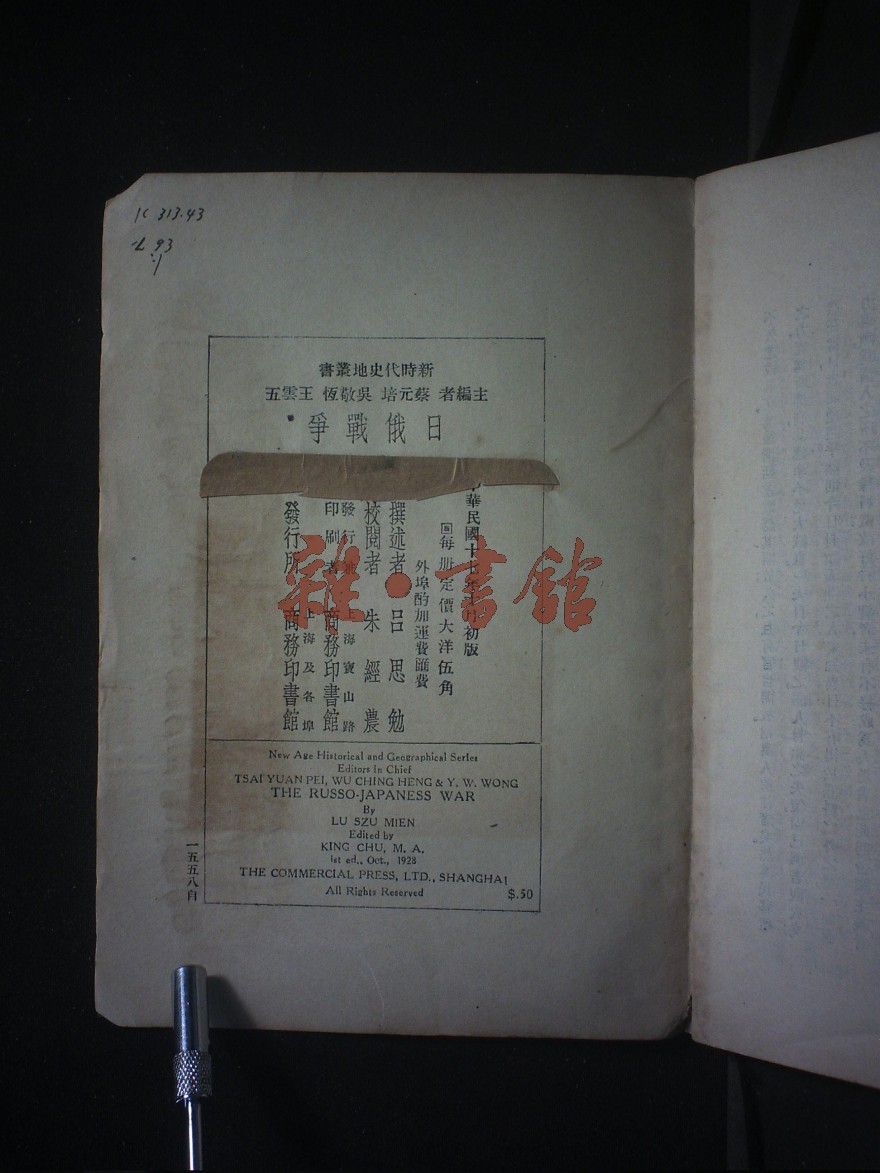 K 313.43
L 93
:1
新時代史地叢書
主編者 蔡元培 吳敬恆 王雲五
日俄戰爭
華民國十七年十月初版
每冊定價大洋伍角
外埠酌加運費匯費
撰述者 呂思勉
校閱者 朱經農
發行 上海寶山路
印刷者 商務印書館
上海及各埠
發行所 商務印書館
雜·書館
New Age Historical and Geographical Series
Editors in Chief
TSAI YUAN PEI, WU CHING HENG & Y. W. WONG
THE RUSSO-JAPANESS WAR
By
LU SZU MIEN
Edited by
KING CHU, M. A.
1st ed., Oct., 1928
THE COMMERCIAL PRESS, LTD., SHANGHAI
All Rights Reserved
$.50
一五五八自